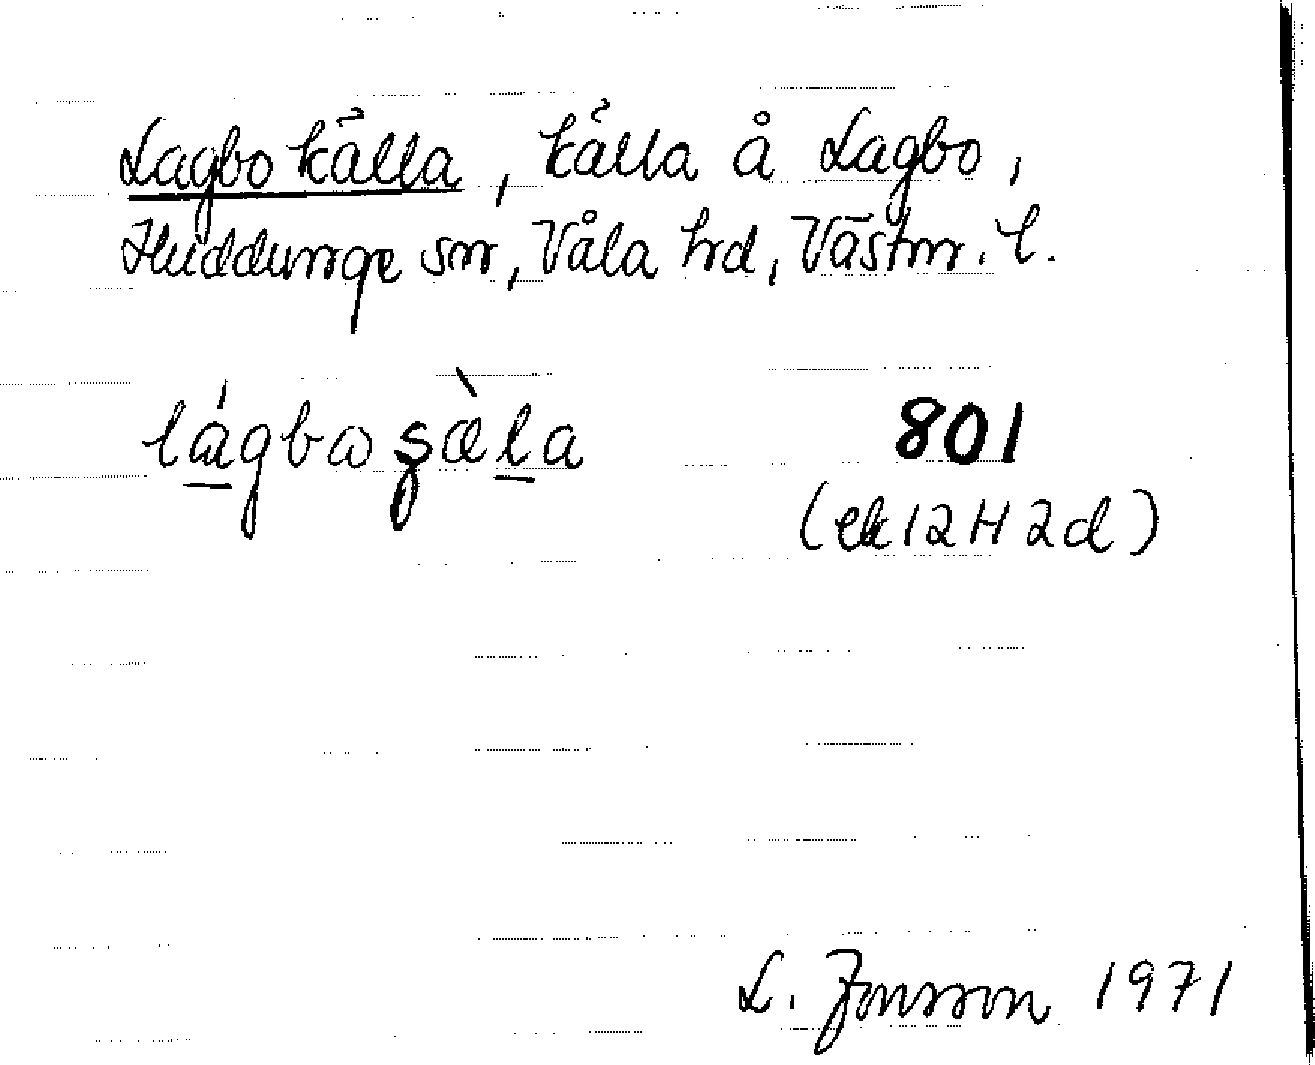 Lagbo källa, källa å Lagbo,
Huddunge sn, Våla hd, Västm. l.
lágboʂὰla 801
(ek 12H 2d)
L. Jonsson 1971